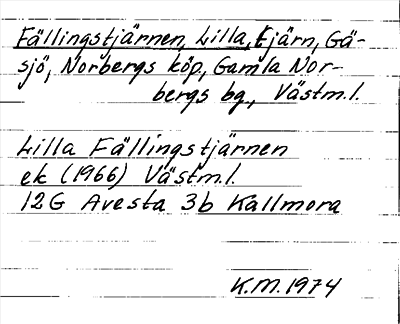 Fällingstjärnen, Lilla, tjärn, Gä-
sjö, Norbergs köp, Gamla Nor-
bergs bg., Västm.l.
Lilla Fällingstjärnen
ek (1966) Västm.l.
12G Avesta 3b Kallmora
K.M. 1974